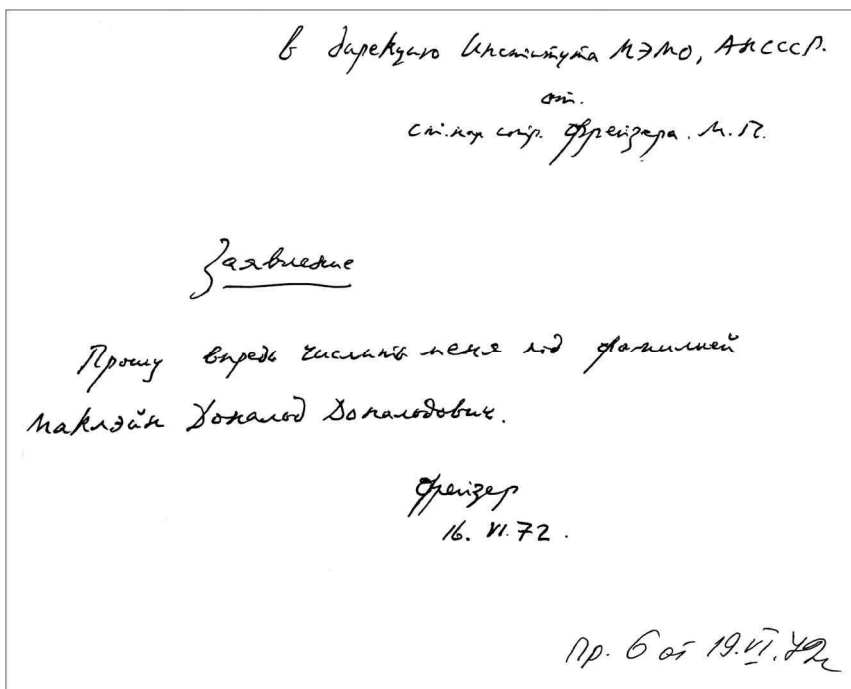 В дирекцию Института МЭМО, АНСССР.
от.
ст. нау. сотр. Фрейзера. М. П.
Заявление
Прошу впредь числить меня под фамилией
Маклэйн Дональд Дональдович.
Фрейзер
16. VI. 72.
Пр. 6 от 19. VI. 72г